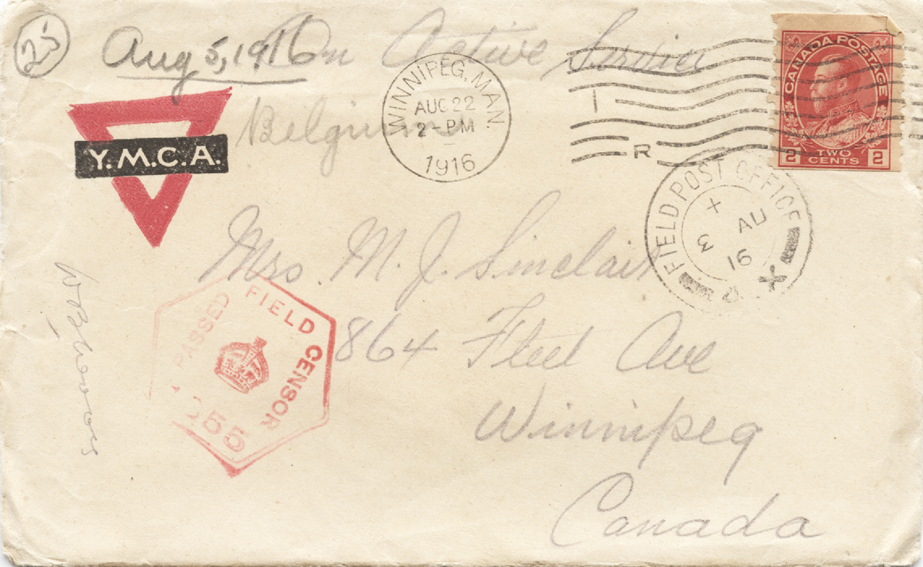 25
Aug 5, 1916
On Active Service
Belgium
Y.M.C.A.
WINNIPEG, MAN.
AUG 22
2 - PM
1916
R
CANADA POSTAGE
2 TWO CENTS 2
FIELD POST OFFICE
X
AU
16
Mrs. M. J. Sinclair
864 Fleet Ave
Winnipeg
Canada
PASSED FIELD CENSOR